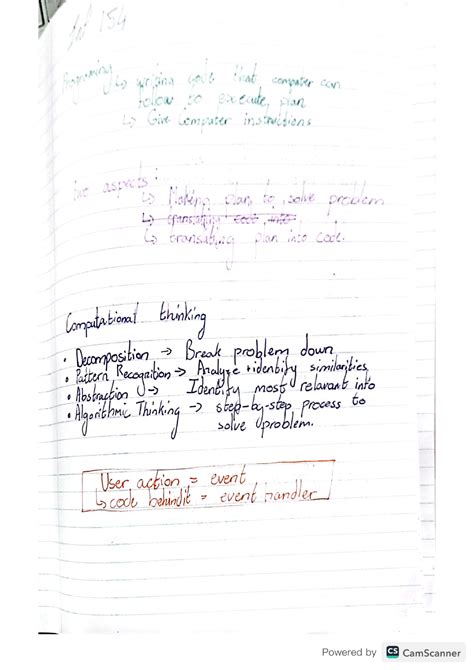 154
Programing ↳ writing code that computer can
follow to execute plan
↳ Give Computer instructions
Two aspects:
↳ Making plan to solve problem
↳ translating code into
↳ translating plan into code.
Computational thinking
• Decomposition → Break problem down
• Pattern Recognition → Analyze + identify similarities
• Abstraction → Identify most relavant info
• Algorithmic Thinking → step-by-step process to
solve problem.
User action = event
↳ code behind it = event handler
Powered by CS CamScanner